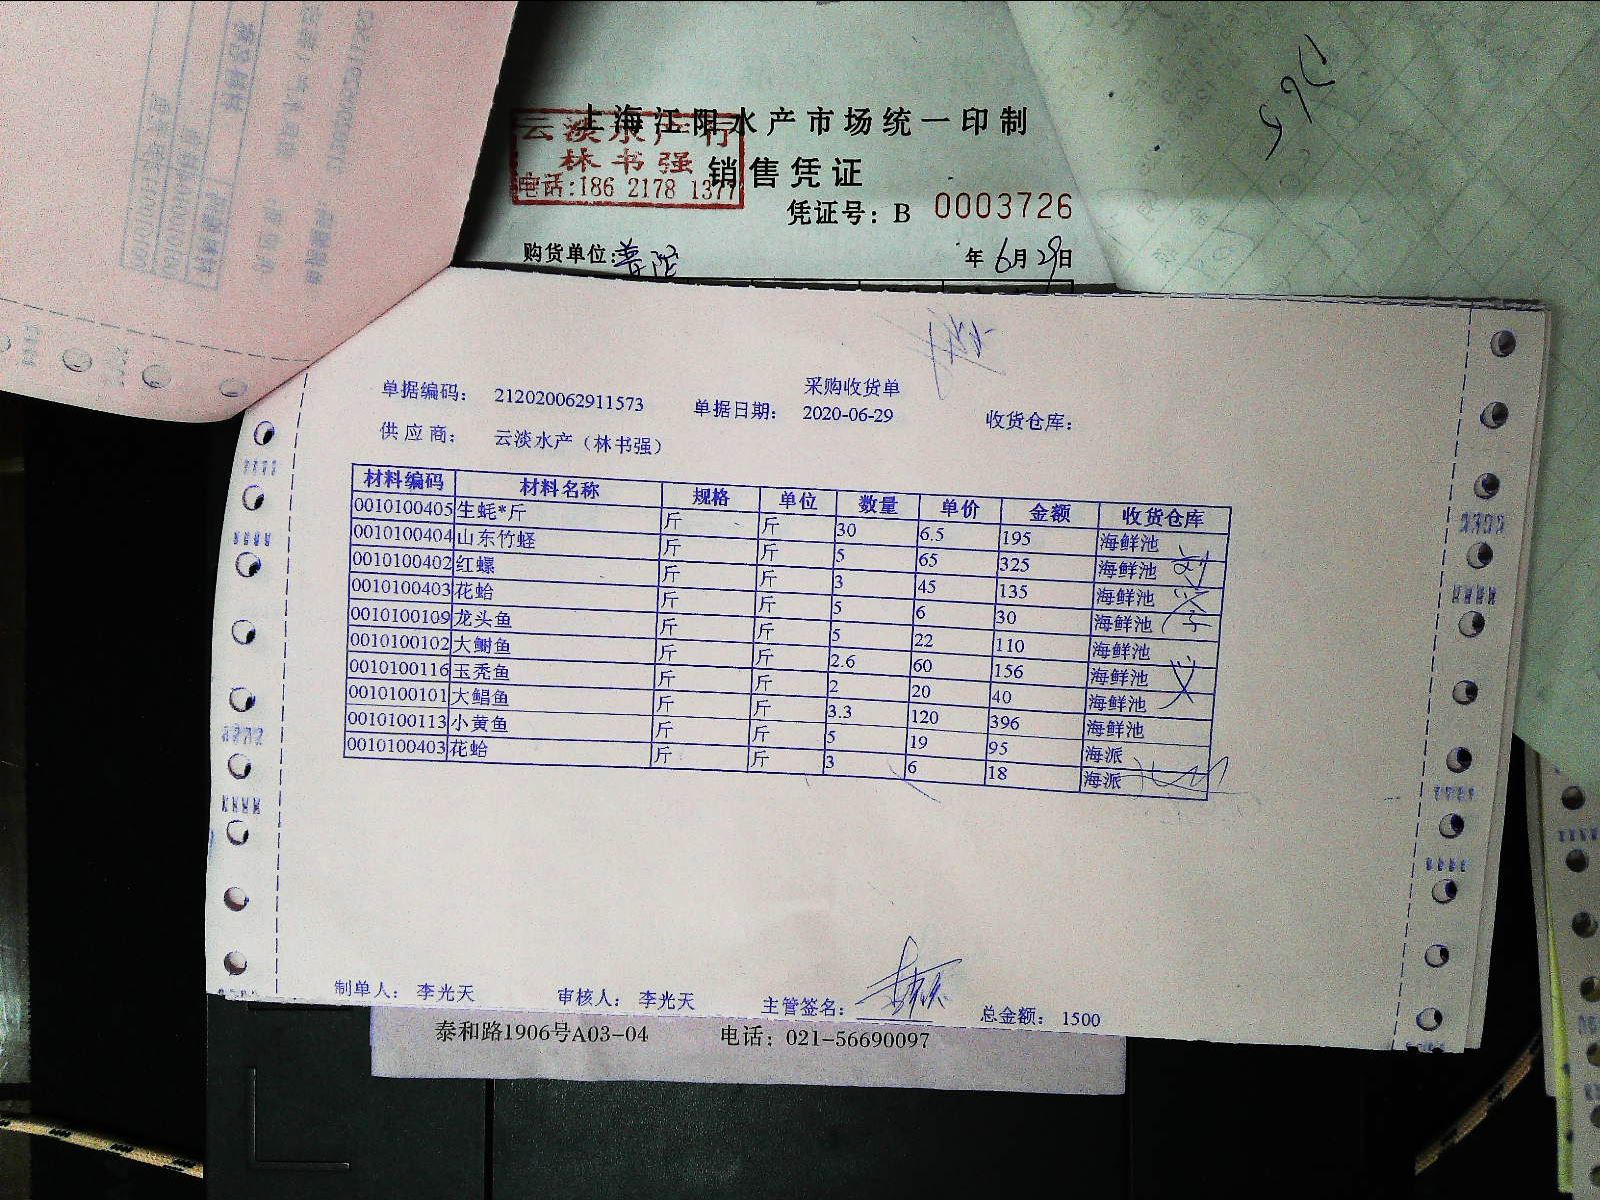 上海江阳水产市场统一印制
云淡水产行
林书强
电话:186 2178 1377
销售凭证
凭证号: B 0003726
购货单位:普陀
年6月29日
采购收货单
单据编码: 212020062911573 单据日期: 2020-06-29 收货仓库:
供应商: 云淡水产（林书强）
材料编码 材料名称 规格 单位 数量 单价 金额 收货仓库
0010100405 生蚝*斤 斤 斤 30 6.5 195 海鲜池
0010100404 山东竹蛏 斤 斤 5 65 325 海鲜池
0010100402 红螺 斤 斤 3 45 135 海鲜池
0010100403 花蛤 斤 斤 5 6 30 海鲜池
0010100109 龙头鱼 斤 斤 5 22 110 海鲜池
0010100102 大鲥鱼 斤 斤 2.6 60 156 海鲜池
0010100116 玉秃鱼 斤 斤 2 20 40 海鲜池
0010100101 大鲳鱼 斤 斤 3.3 120 396 海鲜池
0010100113 小黄鱼 斤 斤 5 19 95 海派
0010100403 花蛤 斤 斤 3 6 18 海派
制单人: 李光天 审核人: 李光天 主管签名: 总金额: 1500
泰和路1906号A03-04 电话: 021-56690097